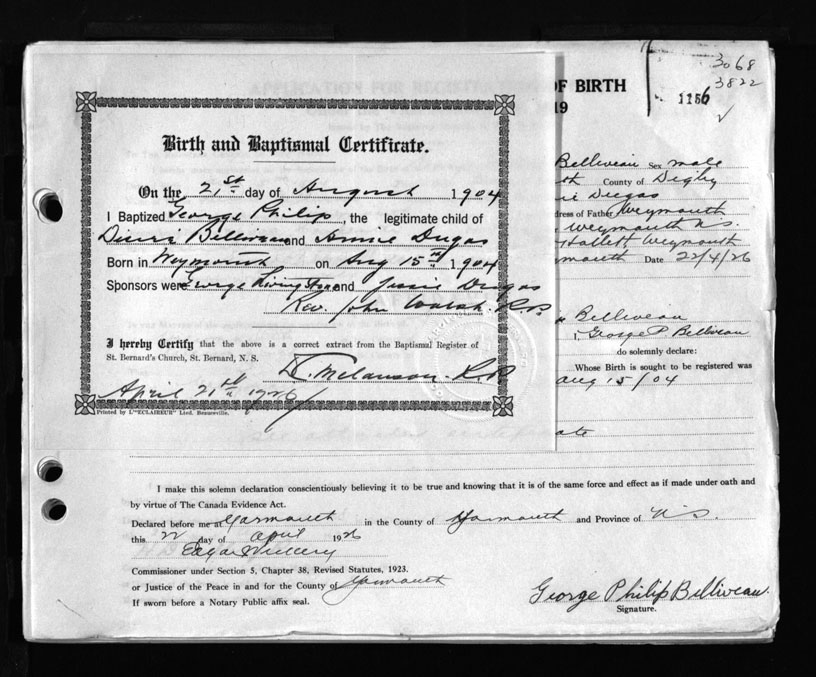 3068
3822
OF BIRTH
1156
19
Birth and Baptismal Certificate.
On the 21st day of August 1904
I Baptized George Philip, the legitimate child of
Belliveau and Annie Dugas
Born in Weymouth on Aug 15th 1904
Sponsors were George Livingstone and Jessie Dugas
Rev John Walsh P.P.
I hereby Certify that the above is a correct extract from the Baptismal Register of
St. Bernard's Church, St. Bernard, N. S.
Melanson P.P.
April 21st 1926
Printed by L'"ECLAIREUR" Lted. Beauceville.
Belliveau Sex male
th County of Digby
ie Dugas
dress of Father Weymouth
Weymouth N.S
Hallett Weymouth
mouth Date 22/4/26
Belliveau
I, George P Belliveau
do solemnly declare:
Whose Birth is sought to be registered was
Aug 15/04
ate
I make this solemn declaration conscientiously believing it to be true and knowing that it is of the same force and effect as if made under oath and
by virtue of The Canada Evidence Act.
Declared before me at Yarmouth in the County of Yarmouth and Province of N S.
this 22 day of April 1926
Edgar
Commissioner under Section 5, Chapter 38, Revised Statutes, 1923.
or Justice of the Peace in and for the County of Yarmouth
If sworn before a Notary Public affix seal.
George Philip Belliveau.
Signature.